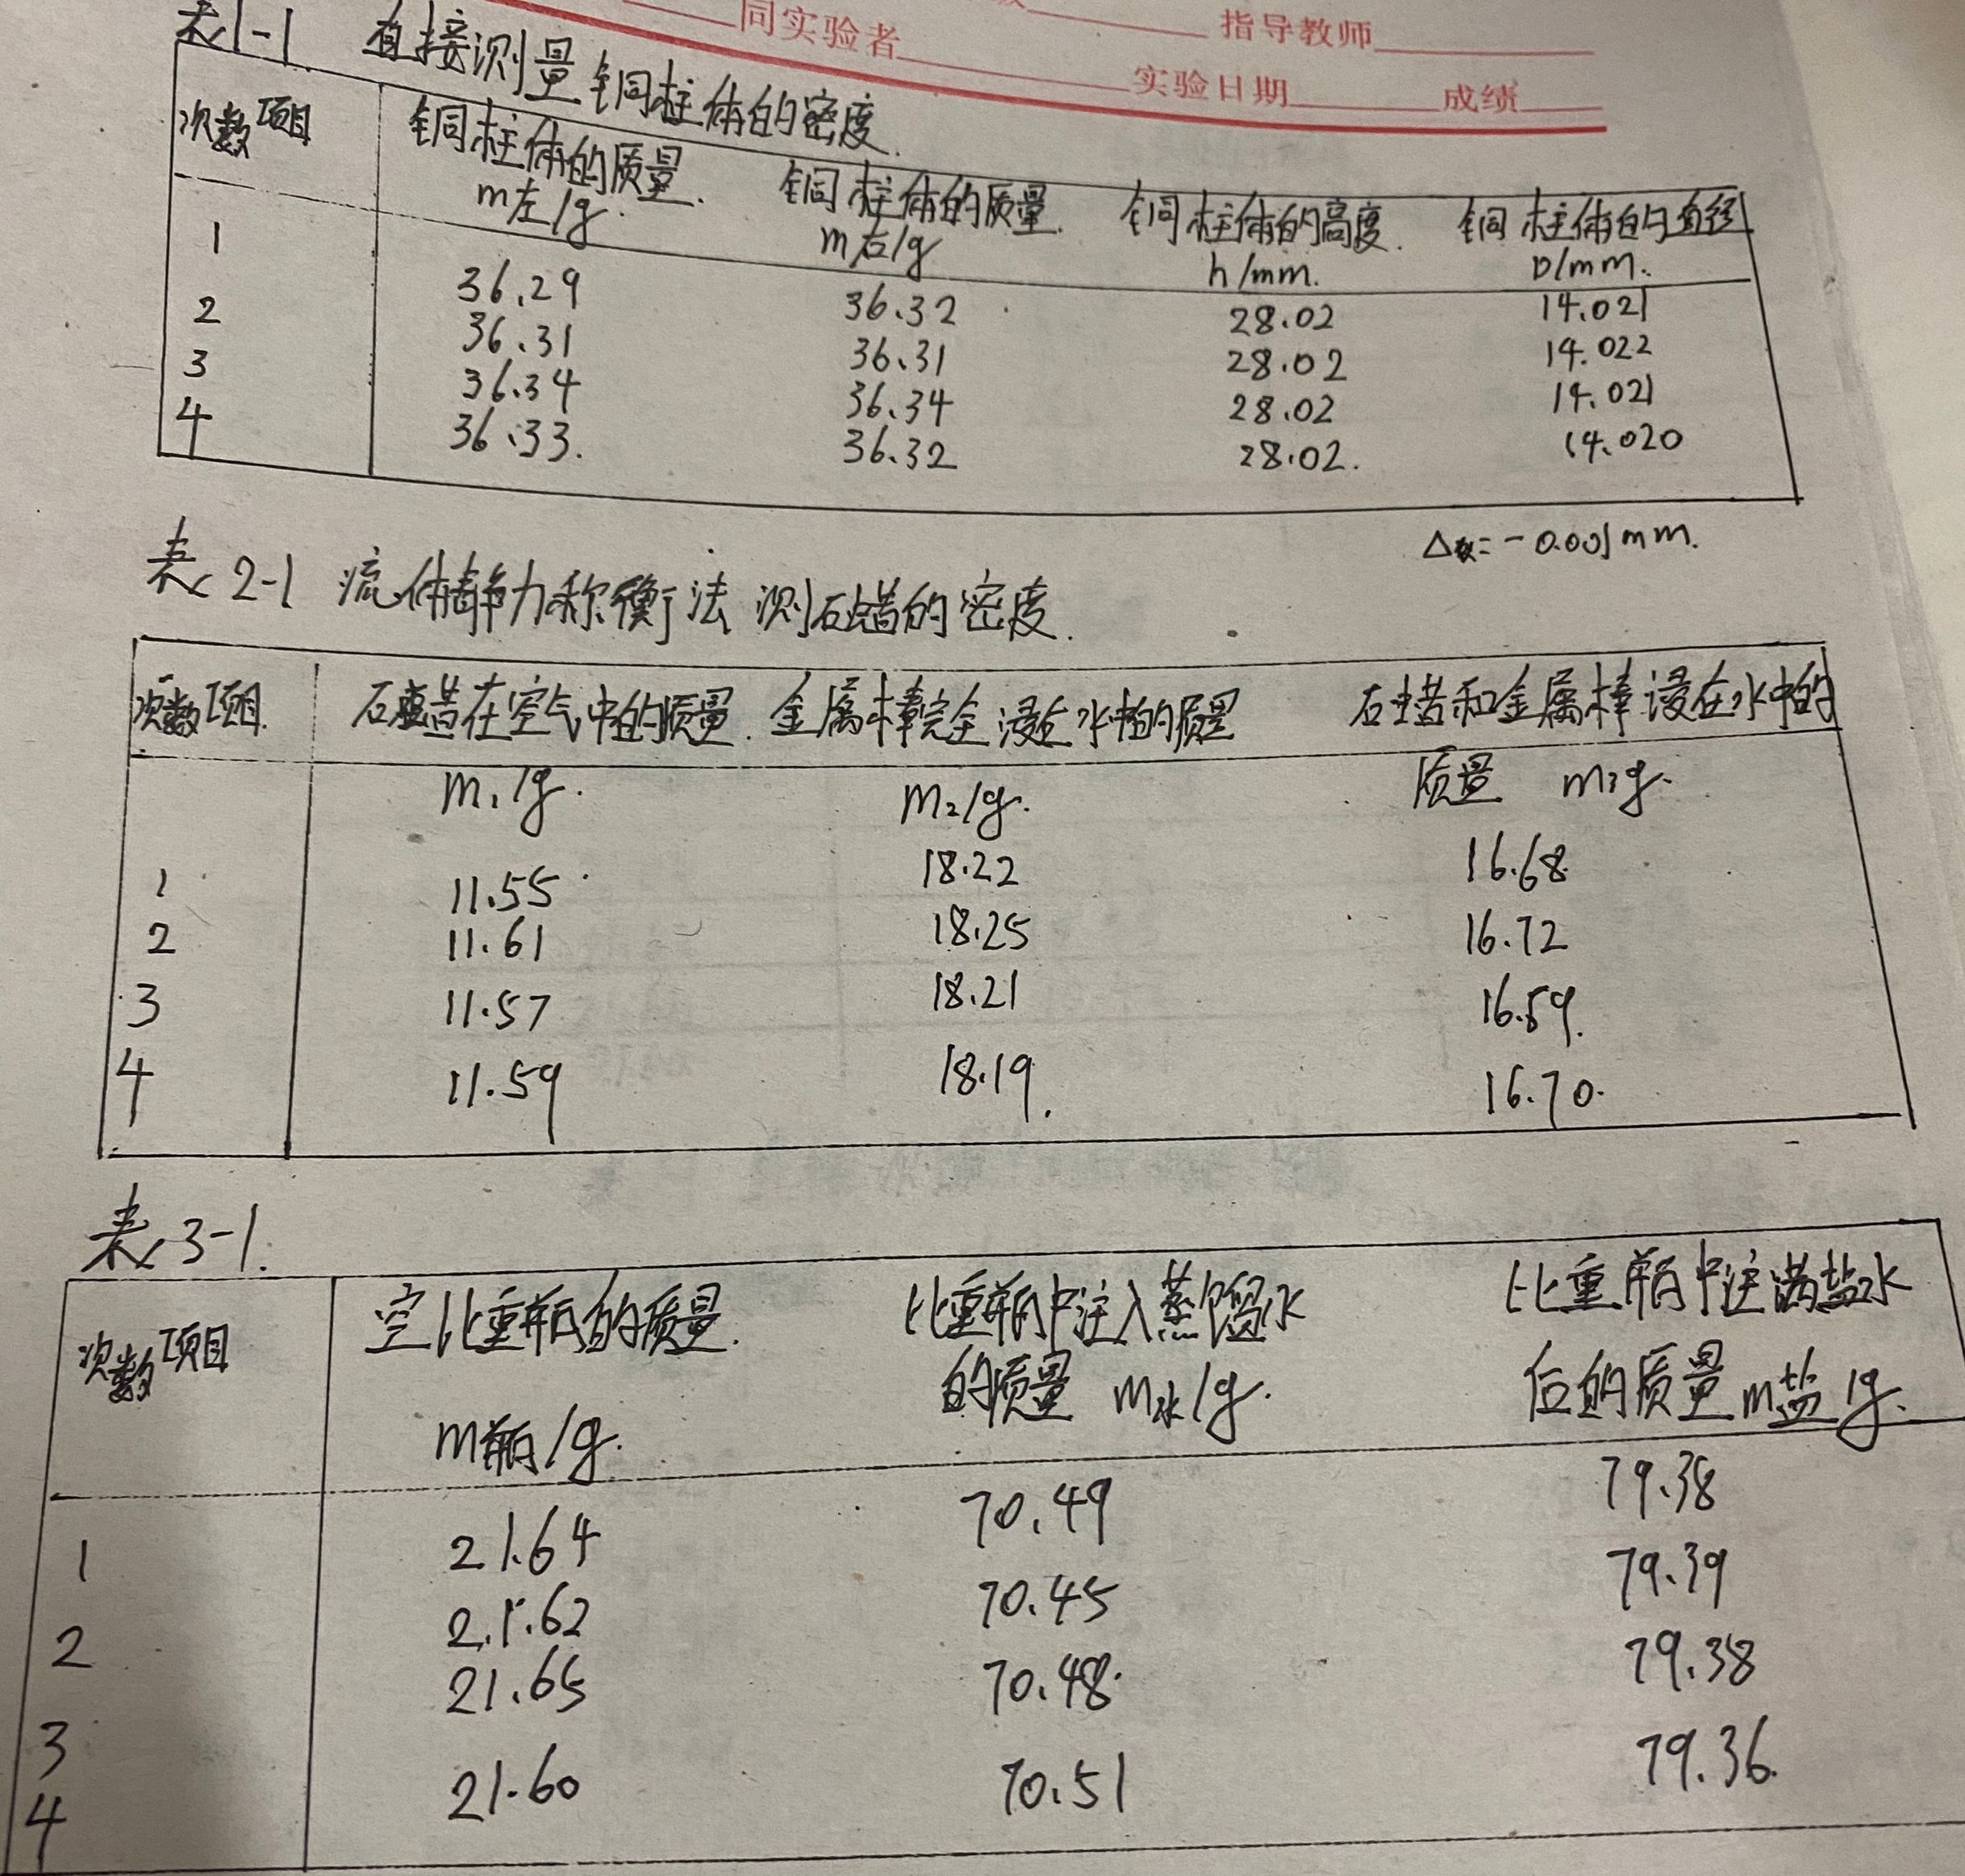 同实验者 指导教师
实验日期 成绩
表1-1 直接测量铜柱体的密度.
次数 项目 铜柱体的质量. m左/g. 铜柱体的质量. m右/g 铜柱体的高度. h/mm. 铜柱体的直径 D/mm.
1 36.29 36.32 28.02 14.021
2 36.31 36.31 28.02 14.022
3 36.34 36.34 28.02 14.021
4 36.33. 36.32 28.02. 14.020
= -0.001mm.
表2-1 流体静力称衡法 测石蜡的密度.
次数 项目. 石蜡在空气中的质量. 金属棒完全浸在水中的质量 石蜡和金属棒浸在水中的
m₁/g. m₂/g. 质量 m₃g.
1 11.55 18.22 16.68
2 11.61 18.25 16.72
3 11.57 18.21 16.59.
4 11.59 18.19. 16.70.
表3-1.
次数 项目 空比重瓶的质量. 比重瓶中注入蒸馏水 比重瓶中注满盐水
的质量 m水/g. 位的质量 m盐/g.
m瓶/g.
1 21.64 70.49 79.38
2 21.62 70.45 79.39
3 21.65 70.48. 79.38
4 21.60 70.51 79.36.